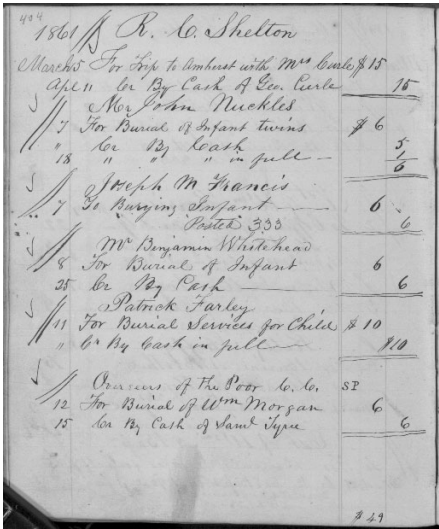 404
1861 R. C. Shelton
March 5 For Trip to Amherst with Mrs Curle $ 15
Apl " Cr By Cash of Geo. Curle 15
Mr John Nuckles
7 For Burial of Infant twins $ 6
" Cr By Cash 5
18 " " " in full 1
6
Joseph M. Francis
7 To Burying Infant 6
Posted 333 6
Mr Benjamin Whitehead
8 For Burial of Infant 6
25 Cr By Cash 6
Patrick Farley
11 For Burial Services for Child $ 10
" Cr By Cash in full $10
Overseers of the Poor C. C. SP
12 For Burial of Wm Morgan 6
15 Cr By Cash of Saml Tyree 6
$ 49